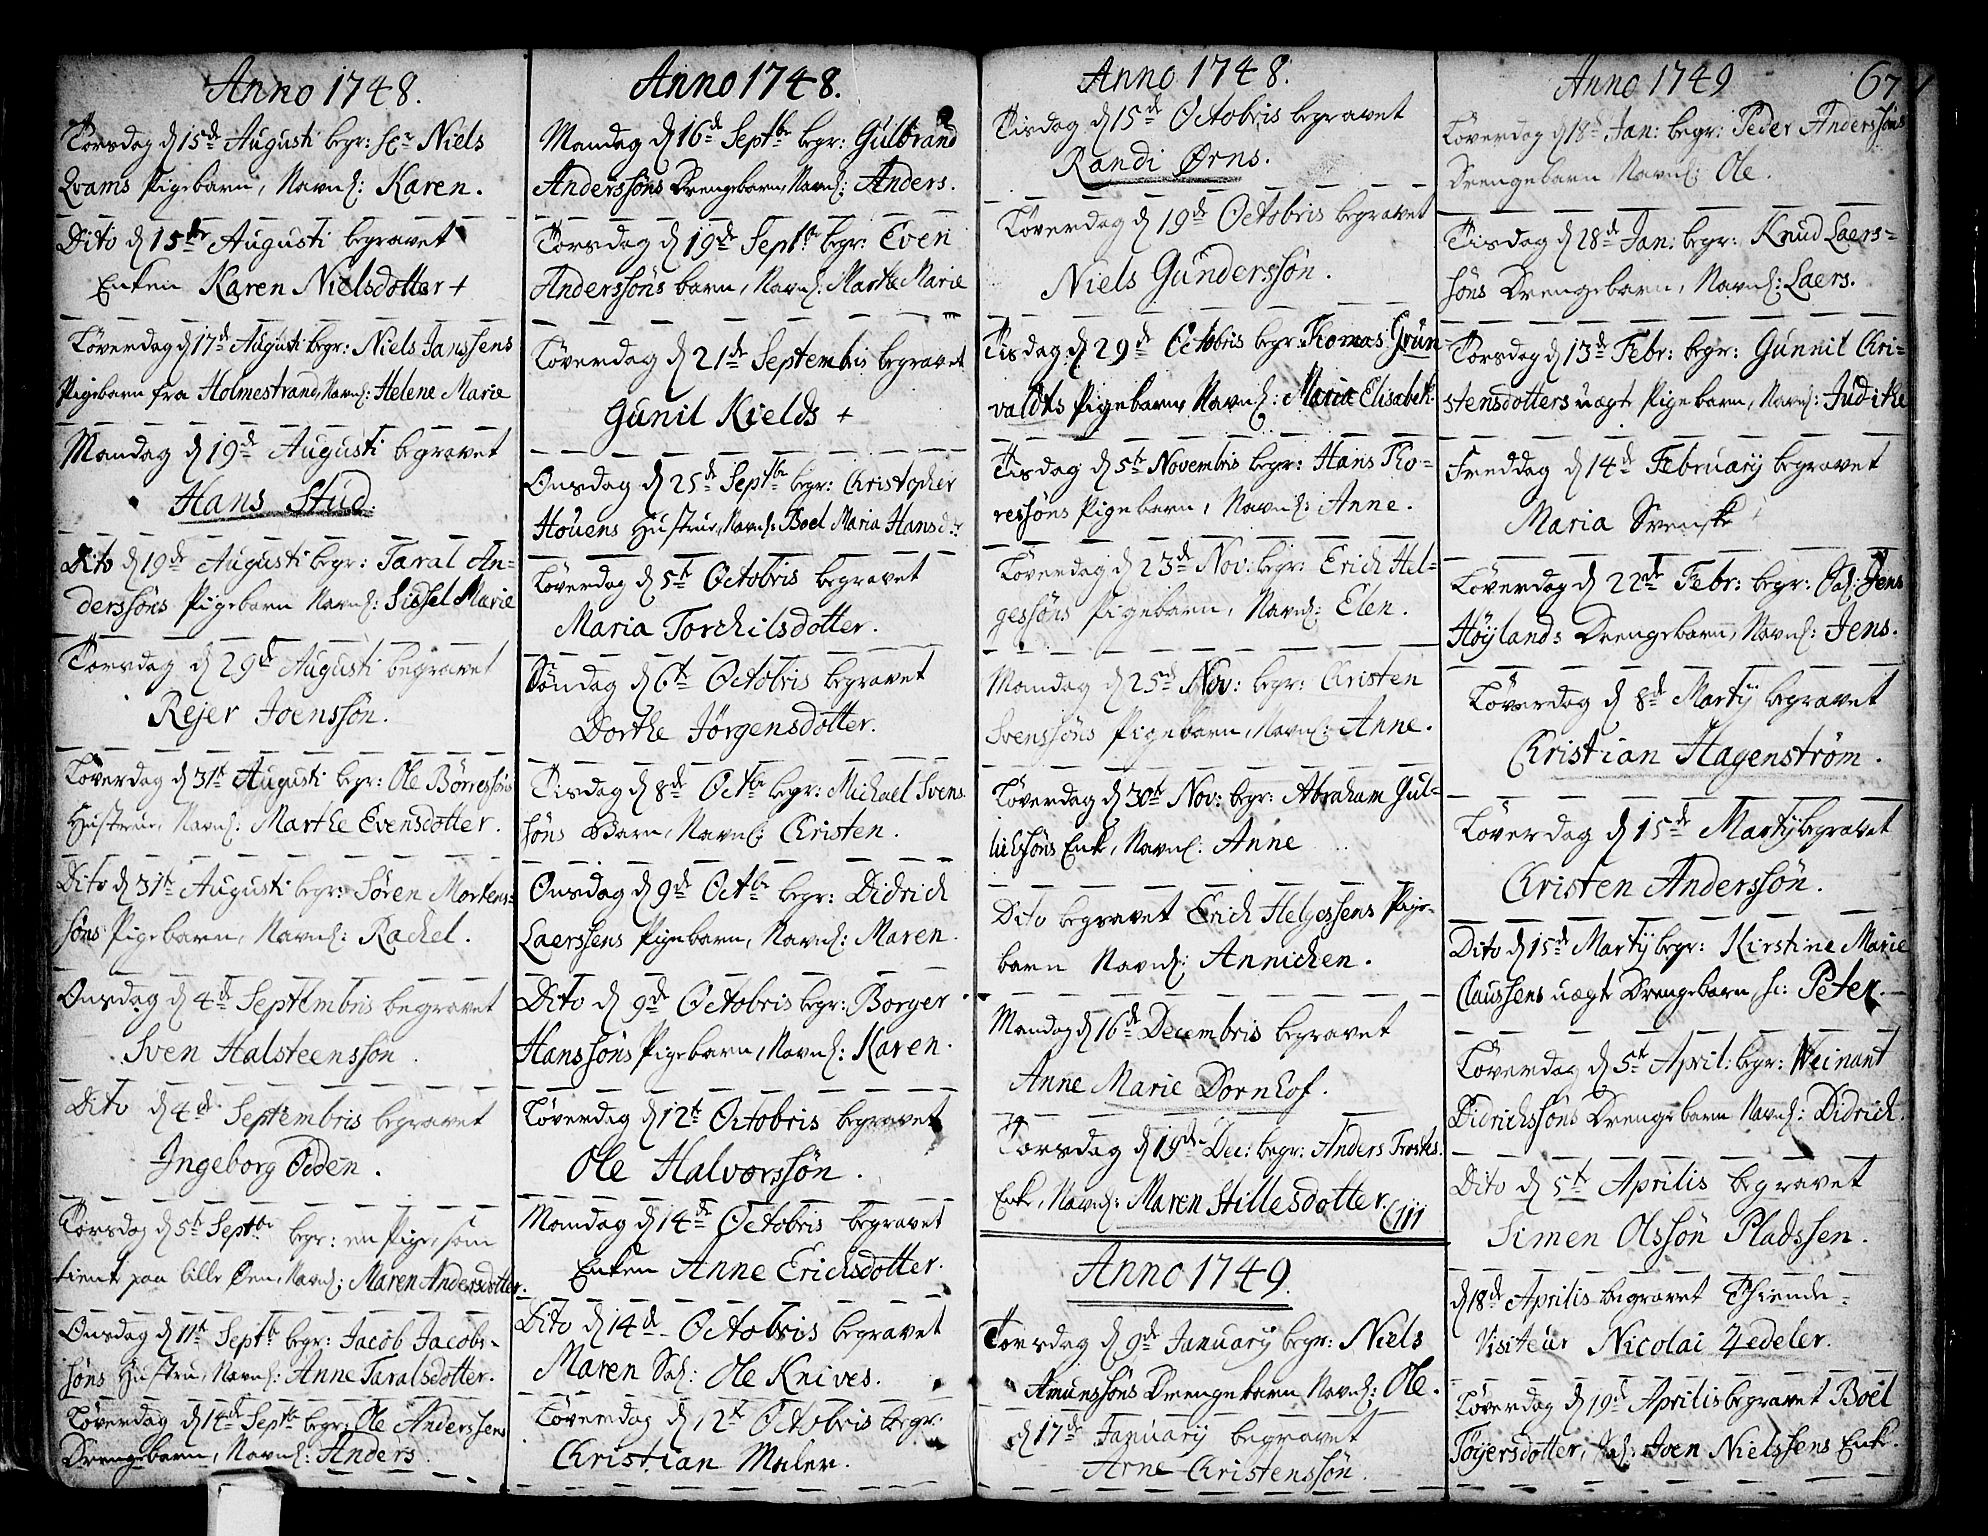 Anno 1748.
Torsdag d 15de Augusti begr: Hr Niels
Qvams Pigebarn, Navnl: Karen.
Dito d 15de Augusti begravet
Enken Karen Nielsdotter +
Løverdag d 17de Augusti begr: Niels Janssens
Pigebarn fra Holmestrand, Navnl: Helene Marie
Mandag d 19de Augusti begravet
Hans Stud.
Dito d 19de Augusti begr: Taral An=
derssøns Pigebarn Navnl: Sidsel Marie
Torsdag d 29de Augusti begravet
Rejer Joenssøn.
Løverdag d 31te Augusti begr: Ole Børressøns
Hustrue, Navnl: Marthe Evensdotter.
Dito d 31te Augusti begr: Søren Mortens=
søns Pigebarn, Navnl: Rachel.
Onsdag d 4de Septembris begravet
Sven Halsteenssøn.
Dito d 4de Septembris begravet
Ingeborg Odden.
Torsdag d 5te Septbr begr: en Pige, som
tient paa Ille Øen, Navnl: Maren Andersdotter.
Onsdag d 11te Septbr begr: Jacob Jacobs-
søns Hustru, Navnl: Anne Taralsdotter.
Løverdag d 14de Septbr begr: Ole Anderssens
Drengebarn, Navnl: Anders.
Anno 1748.
Mandag d 16de Septbr begr: Gulbrand
Anderssøns Drengebarn, Navnl: Anders.
Torsdag d 19de Septbr begr: Even
Anderssøns barn, Navnl: Marthe Marie
Løverdag d 21de Septembris begravet
Gunil Kields +
Onsdag d 25de Septbr begr: Christopher
Houens Hustrue, Navnl: Boel Maria Hansd:r
Løverdag d 5te Octobris begravet
Maria Torchilsdotter.
Søndag d 6te Octobris begravet
Dorthe Jørgensdotter.
Tisdag d 8de Octbr begr: Michael Svens
søns Barn, Navnl: Christen.
Onsdag d 9de Octbr begr: Didrich
Laerssens Pigebarn, Navnl: Maren.
Dito d 9de Octobris begr: Borger
Hanssøns Pigebarn, Navnl: Karen.
Løverdag d 12te Octobris begravet
Ole Halvorssøn.
Mandag d 14de Octobris begravet
Enken Anne Erichsdotter.
Dito d 14de Octobris begravet
Maren Sal: Ole Knives.
Løverdag d 12te Octobris begr:
Christian Maler.
Anno 1748.
Tisdag d 15de Octobris begravet
Randi Ørns.
Løverdag d 19de Octobris begravet
Niels Gunderssøn.
Tisdag d 29de Octobris begr: Thomas Grün
valdts Pigebarn, Navnl: Maria Elisabeth
Tisdag d 5te Novembris begr: Hans Tho=
ressøns Pigebarn, Navnl: Anne.
Løverdag d 23de Nov: begr: Erich Hel=
gessøns Pigebarn, Navnl: Elen.
Mandag d 25de Nov: begr: Christen
Svenssøns Pigebarn, Navnl: Anne.
Løverdag d 30te Nov: begr: Abraham Gul=
lichsøns Enke, Navnl: Anne
Dito begravet Erich Helgessens Pige-
barn Navnl: Annichen.
Mandag d 16de Decembris begravet
Anne Marie Dornhof.
Torsdag d 19de Dec: begr: Anders Trostes
Enke, Navnl: Maren Stillesdotter.
Anno 1749.
Torsdag d 9de January begr: Niels
Amunssøns Drengebarn Navnl: Ole.
d 17de January begravet
Arne Christenssøn.
Anno 1749
67
Løverdag d 18de Jan: begr: Peder Anderssøns
Drengebarn Navnl: Ole.
Tisdag d 28de Jan: begr: Knud Laers=
søns Drengebarn, Navnl: Laers.
Torsdag d 13de Febr: begr: Gunnil Chri=
stensdotters uægte Pigebarn, Navnl: Judithe
Freddag d 14de February begravet
Maria Svenske
Løverdag d 22de Febr: begr: Sal: Jens
Høylands Drengebarn, Navnl: Jens.
Løverdag d 8de Martij begravet
Christian Hagenstrøm.
Løverdag d 15de Martij begravet
Christen Anderssøn.
Dito d 15de Martij begr: Kirstine Marie
Claussens uægte Drengebarn, H: Peter.
Løverdag d 5te April: begr: Weinant
Didrichssøns Drengebarn Navnl: Didrich.
Dito d 5te Aprilis begravet
Simen Olssøn Pladssen.
d 18de Aprilis begravet Thiende-
Visiteur Nicolai Zedeler.
Løverdag d 19de Aprilis begravet Boel
Tøyersdotter, Sal: Joen Nielssens Enke.